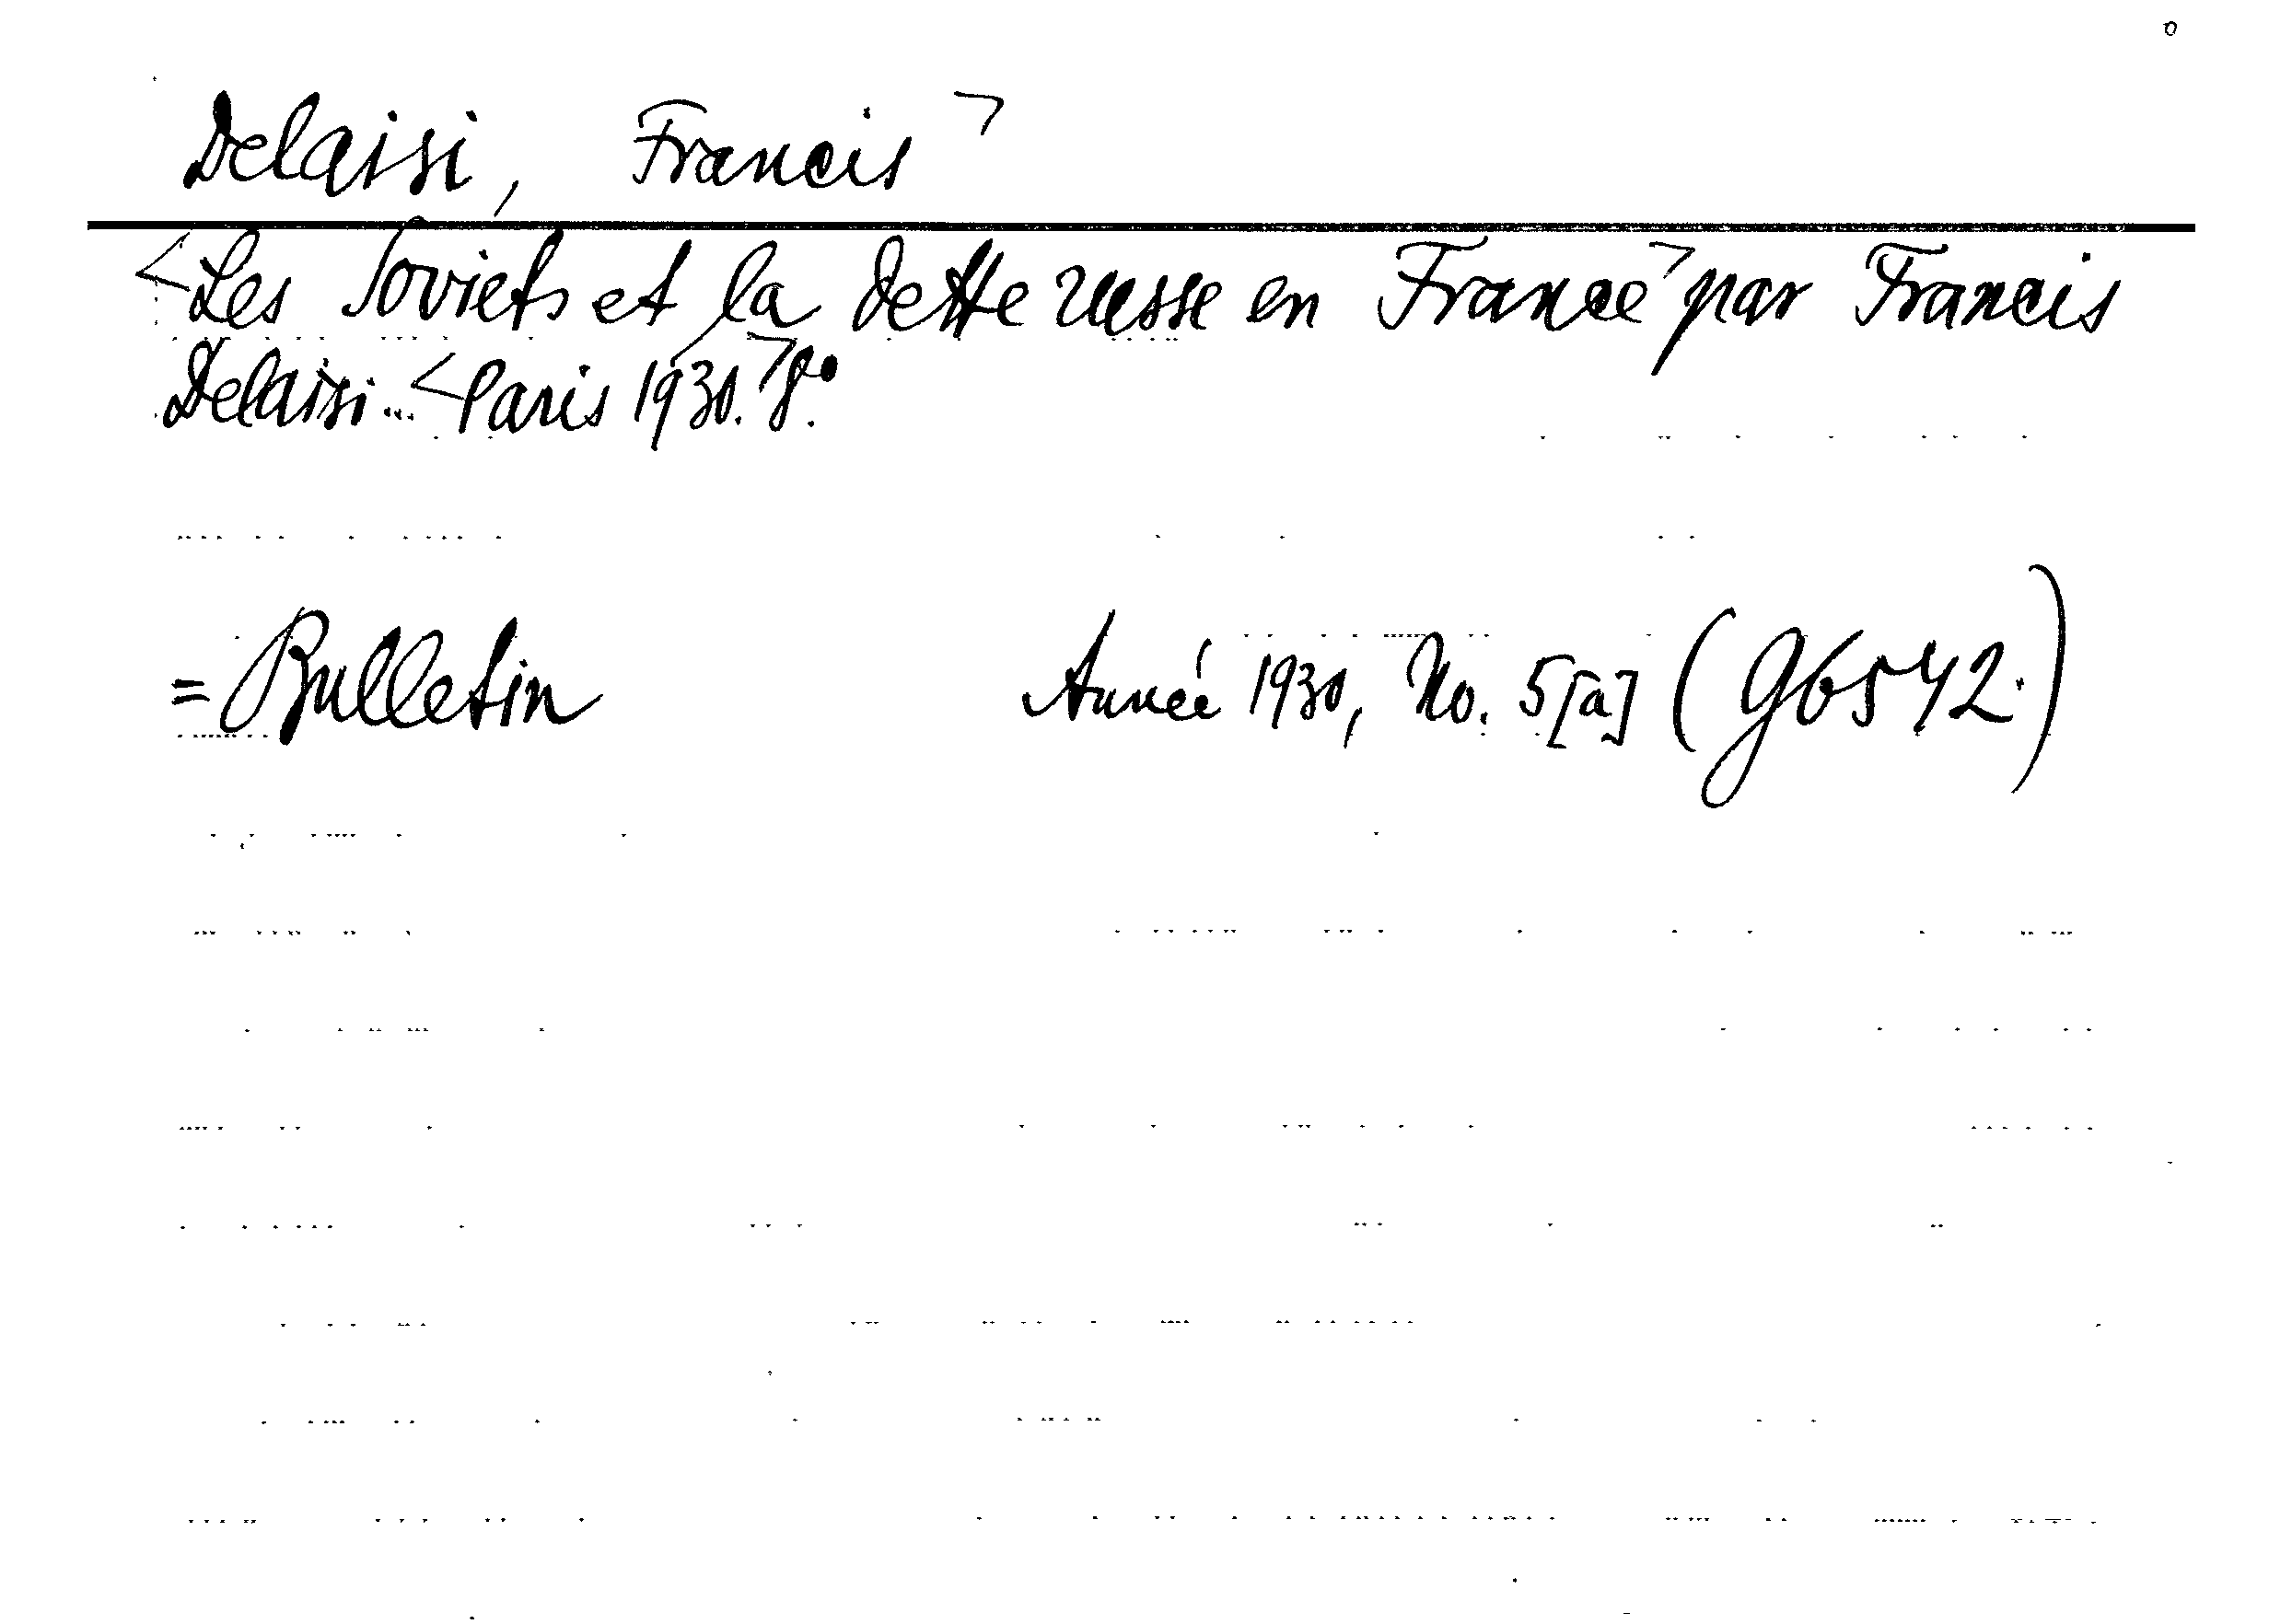 Delaisi, Francis ⌝
<Les Soviets et la dette russe en France⌝ par Francis
Delaisi... <Paris 1930.⌝ 8°.
= Bulletin Année 1930, No. 5[a] (G6542.)